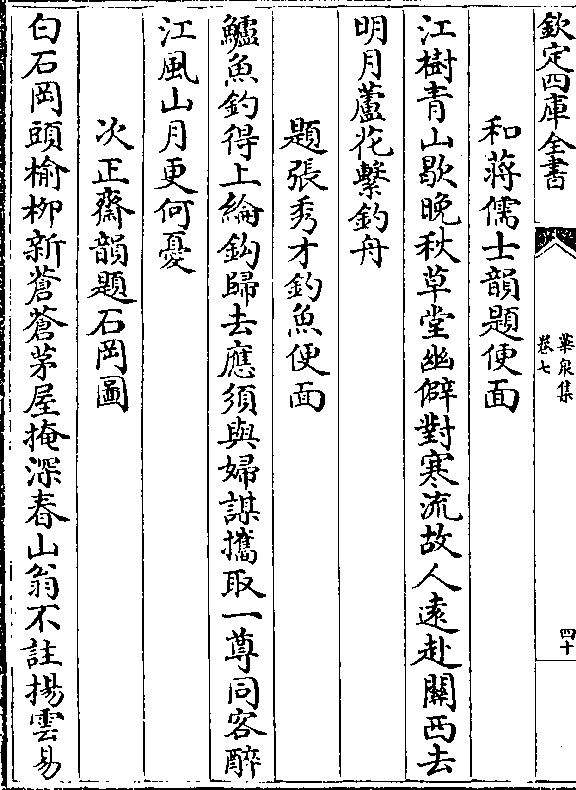 欽定四庫全書
華泉集
卷七
四十
和蔣儒士韻題便面
江樹青山歇晚秋草堂幽僻對寒流故人遠赴關西去
明月蘆花繫釣舟
題張秀才釣魚便面
鱸魚釣得上綸鈎歸去應須與婦謀攜取一尊同客醉
江風山月更何憂
次正齋韻題石岡圖
白石岡頭榆栁新蒼蒼茅屋掩深春山翁不註揚雲易